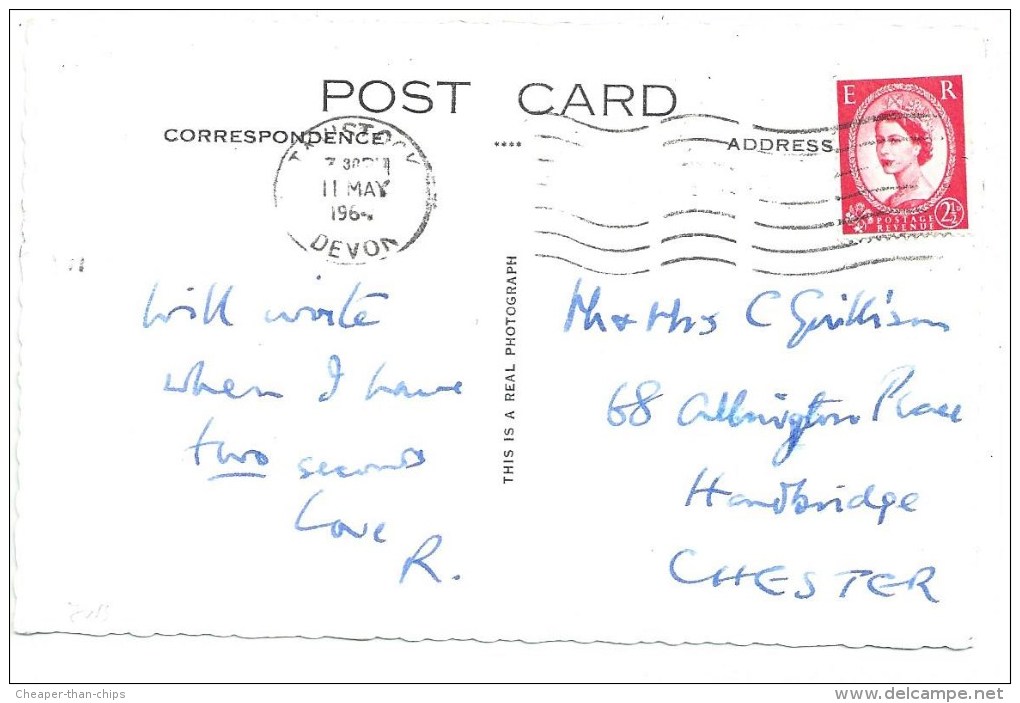 POST CARD
CORRESPONDENCE
****
ADDRESS
E R
POSTAGE
REVENUE
2½D
TAVISTOCK
11 MAY
196
DEVON
THIS IS A REAL PHOTOGRAPH
Will write
when I have
two seconds
Love
R.
Mr & Mrs C
68 Place
Handbridge
CHESTER
Cheaper-than-chips
www.delcampe.net